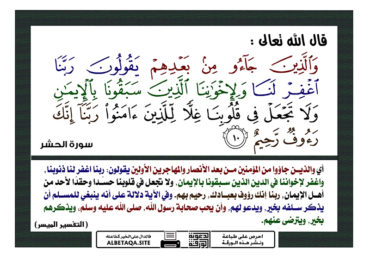 قال الله تعالى :
وَالَّذِينَ جَآءُو مِنۢ بَعْدِهِمْ يَقُولُونَ رَبَّنَا
ٱغْفِرْ لَنَا وَلِإِخْوَٰنِنَا ٱلَّذِينَ سَبَقُونَا بِٱلْإِيمَٰنِ
وَلَا تَجْعَلْ فِى قُلُوبِنَا غِلًّا لِّلَّذِينَ ءَامَنُوا۟ رَبَّنَآ إِنَّكَ
رَءُوفٌ رَّحِيمٌ ١٠
سورة الحشر
أي والذين جاؤوا من المؤمنين من بعد الأنصار والمهاجرين الأولين يقولون: ربنا اغفر لنا ذنوبنا،
واغفر لإخواننا في الدين الذين سبقونا بالإيمان، ولا تجعل في قلوبنا حسدا وحقدا لأحد من
أهل الإيمان، ربنا إنك رؤوف بعبادك، رحيم بهم. وفي الآية دلالة على أنه ينبغي للمسلم أن
يذكر سلفه بخير، ويدعو لهم، وأن يحب صحابة رسول الله، صلى الله عليه وسلم، ويذكرهم
بخير، ويترضى عنهم.
(التفسير الميسر)
ALBETAQA.SITE
احرص على طباعة
ونشر هذه البطاقة